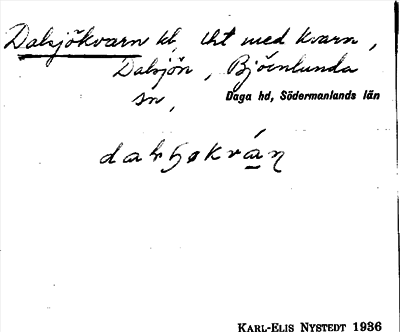 Dalsjökvarn kl, lht med kvarn,
Dalsjön, Björnlunda
sn, Daga hd, Södermanlands län
KARL-ELIS NYSTEDT 1936